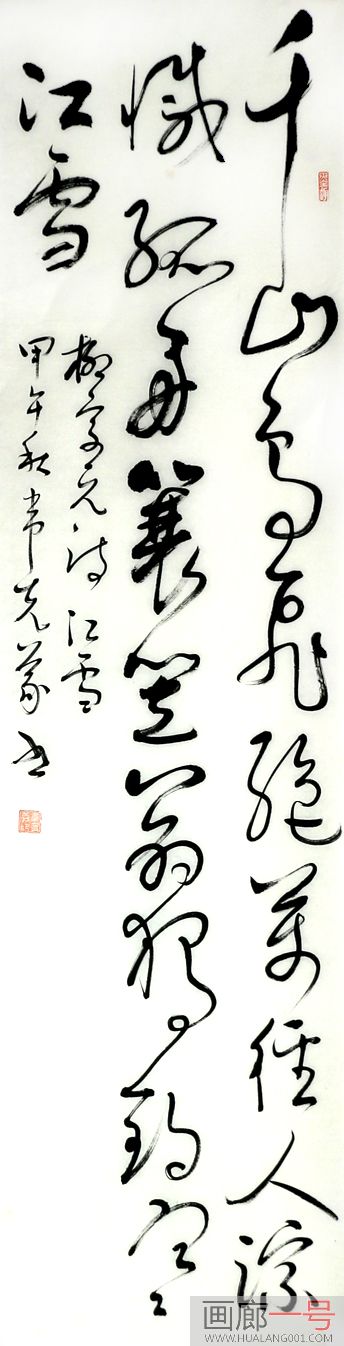 千山鳥飛絕萬徑人踪
滅孤舟蓑笠翁獨釣寒
江雪
柳宗元诗江雪
甲午秋常克书
画廊一号
WWW.HUALANG001.COM